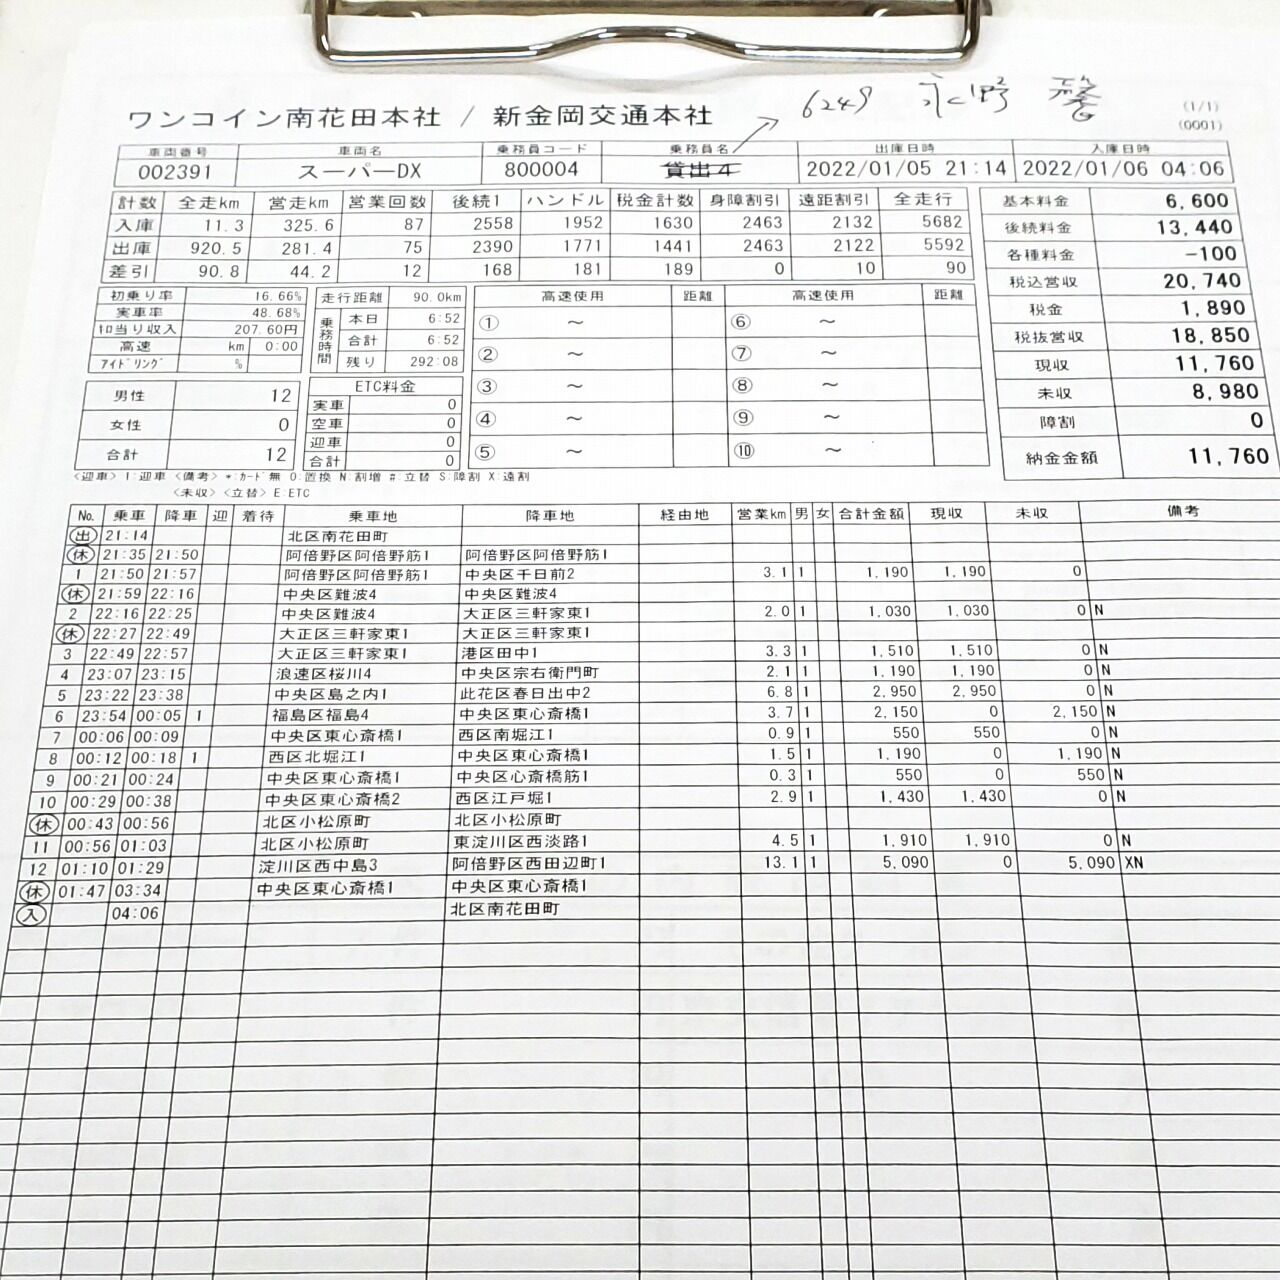 6249 永野
ワンコイン南花田本社 / 新金岡交通本社
(1/1)
(0001)
車両番号 車両名 乗務員コード 乗務員名 出庫日時 入庫日時
002391 スーパーDX 800004 貸出4 2022/01/05 21:14 2022/01/06 04:06
計数 全走km 営走km 営業回数 後続1 ハンドル 税金計数 身障割引 遠距割引 全走行
入庫 11.3 325.6 87 2558 1952 1630 2463 2132 5682
出庫 920.5 281.4 75 2390 1771 1441 2463 2122 5592
差引 90.8 44.2 12 168 181 189 0 10 90
基本料金 6,600
後続料金 13,440
各種料金 -100
税込営収 20,740
税金 1,890
税抜営収 18,850
現収 11,760
未収 8,980
障割 0
納金金額 11,760
初乗り率 16.66%
実車率 48.68%
キロ当り収入 207.60円
高速 km 0:00
アイドリング %
走行距離 90.0km
乗務時間
本日 6:52
合計 6:52
残り 292:08
高速使用 距離 高速使用 距離
① ～ ⑥ ～
② ～ ⑦ ～
③ ～ ⑧ ～
④ ～ ⑨ ～
⑤ ～ ⑩ ～
男性 12
女性 0
合計 12
ETC料金
実車 0
空車 0
迎車 0
合計 0
<迎車> 1:迎車 <備考> *:カード無 O:置換 N:割増 #:立替 S:障割 X:遠割
<未収> <立替> E:ETC
No. 乗車 降車 迎 着待 乗車地 降車地 経由地 営業km 男 女 合計金額 現収 未収 備考
出 21:14 北区南花田町
休 21:35 21:50 阿倍野区阿倍野筋1 阿倍野区阿倍野筋1
1 21:50 21:57 阿倍野区阿倍野筋1 中央区千日前2 3.1 1 1,190 1,190 0
休 21:59 22:16 中央区難波4 中央区難波4
2 22:16 22:25 中央区難波4 大正区三軒家東1 2.0 1 1,030 1,030 0 N
休 22:27 22:49 大正区三軒家東1 大正区三軒家東1
3 22:49 22:57 大正区三軒家東1 港区田中1 3.3 1 1,510 1,510 0 N
4 23:07 23:15 浪速区桜川4 中央区宗右衛門町 2.1 1 1,190 1,190 0 N
5 23:22 23:38 中央区島之内1 此花区春日出中2 6.8 1 2,950 2,950 0 N
6 23:54 00:05 1 福島区福島4 中央区東心斎橋1 3.7 1 2,150 0 2,150 N
7 00:06 00:09 中央区東心斎橋1 西区南堀江1 0.9 1 550 550 0 N
8 00:12 00:18 1 西区北堀江1 中央区東心斎橋1 1.5 1 1,190 0 1,190 N
9 00:21 00:24 中央区東心斎橋1 中央区心斎橋筋1 0.3 1 550 0 550 N
10 00:29 00:38 中央区東心斎橋2 西区江戸堀1 2.9 1 1,430 1,430 0 N
休 00:43 00:56 北区小松原町 北区小松原町
11 00:56 01:03 北区小松原町 東淀川区西淡路1 4.5 1 1,910 1,910 0 N
12 01:10 01:29 淀川区西中島3 阿倍野区西田辺町1 13.1 1 5,090 0 5,090 XN
休 01:47 03:34 中央区東心斎橋1 中央区東心斎橋1
入 04:06 北区南花田町